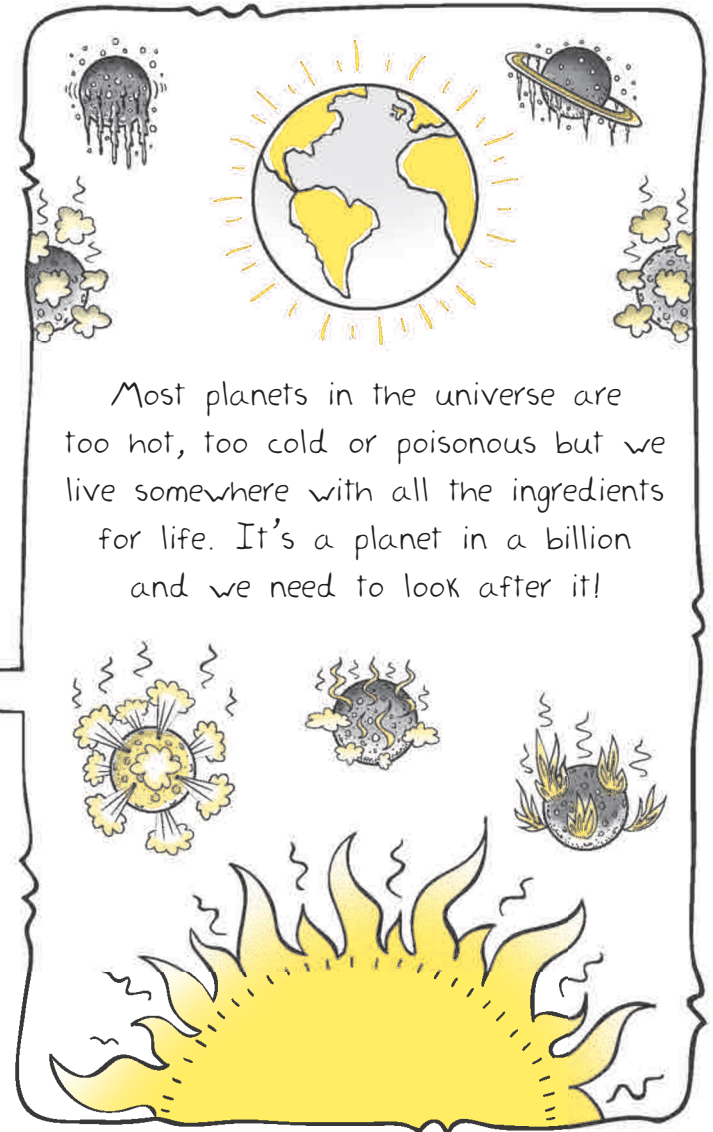 Most planets in the universe are
too hot, too cold or poisonous but we
live somewhere with all the ingredients
for life. It's a planet in a billion
and we need to look after it!